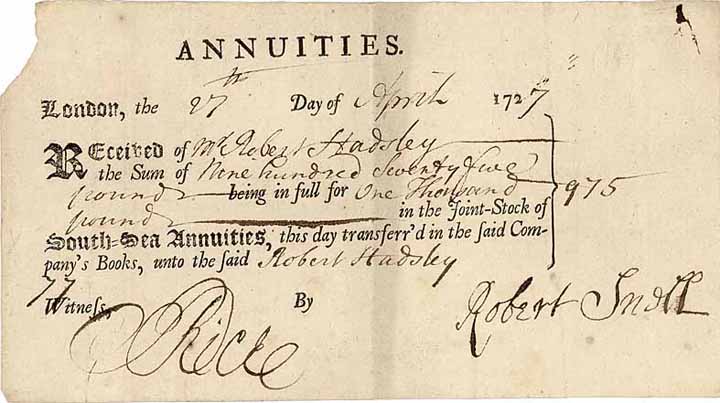 ANNUITIES.
London, the 27th Day of April 1727
Received of Mr Robert Hadsley
the Sum of Nine hundred Seventy five
pounds being in full for One Thousand 975
pounds in the Joint-Stock of
South-Sea Annuities, this day transferr'd in the said Com-
pany's Books, unto the said Robert Hadsley
77
Witness, By Robert Snell
Rice